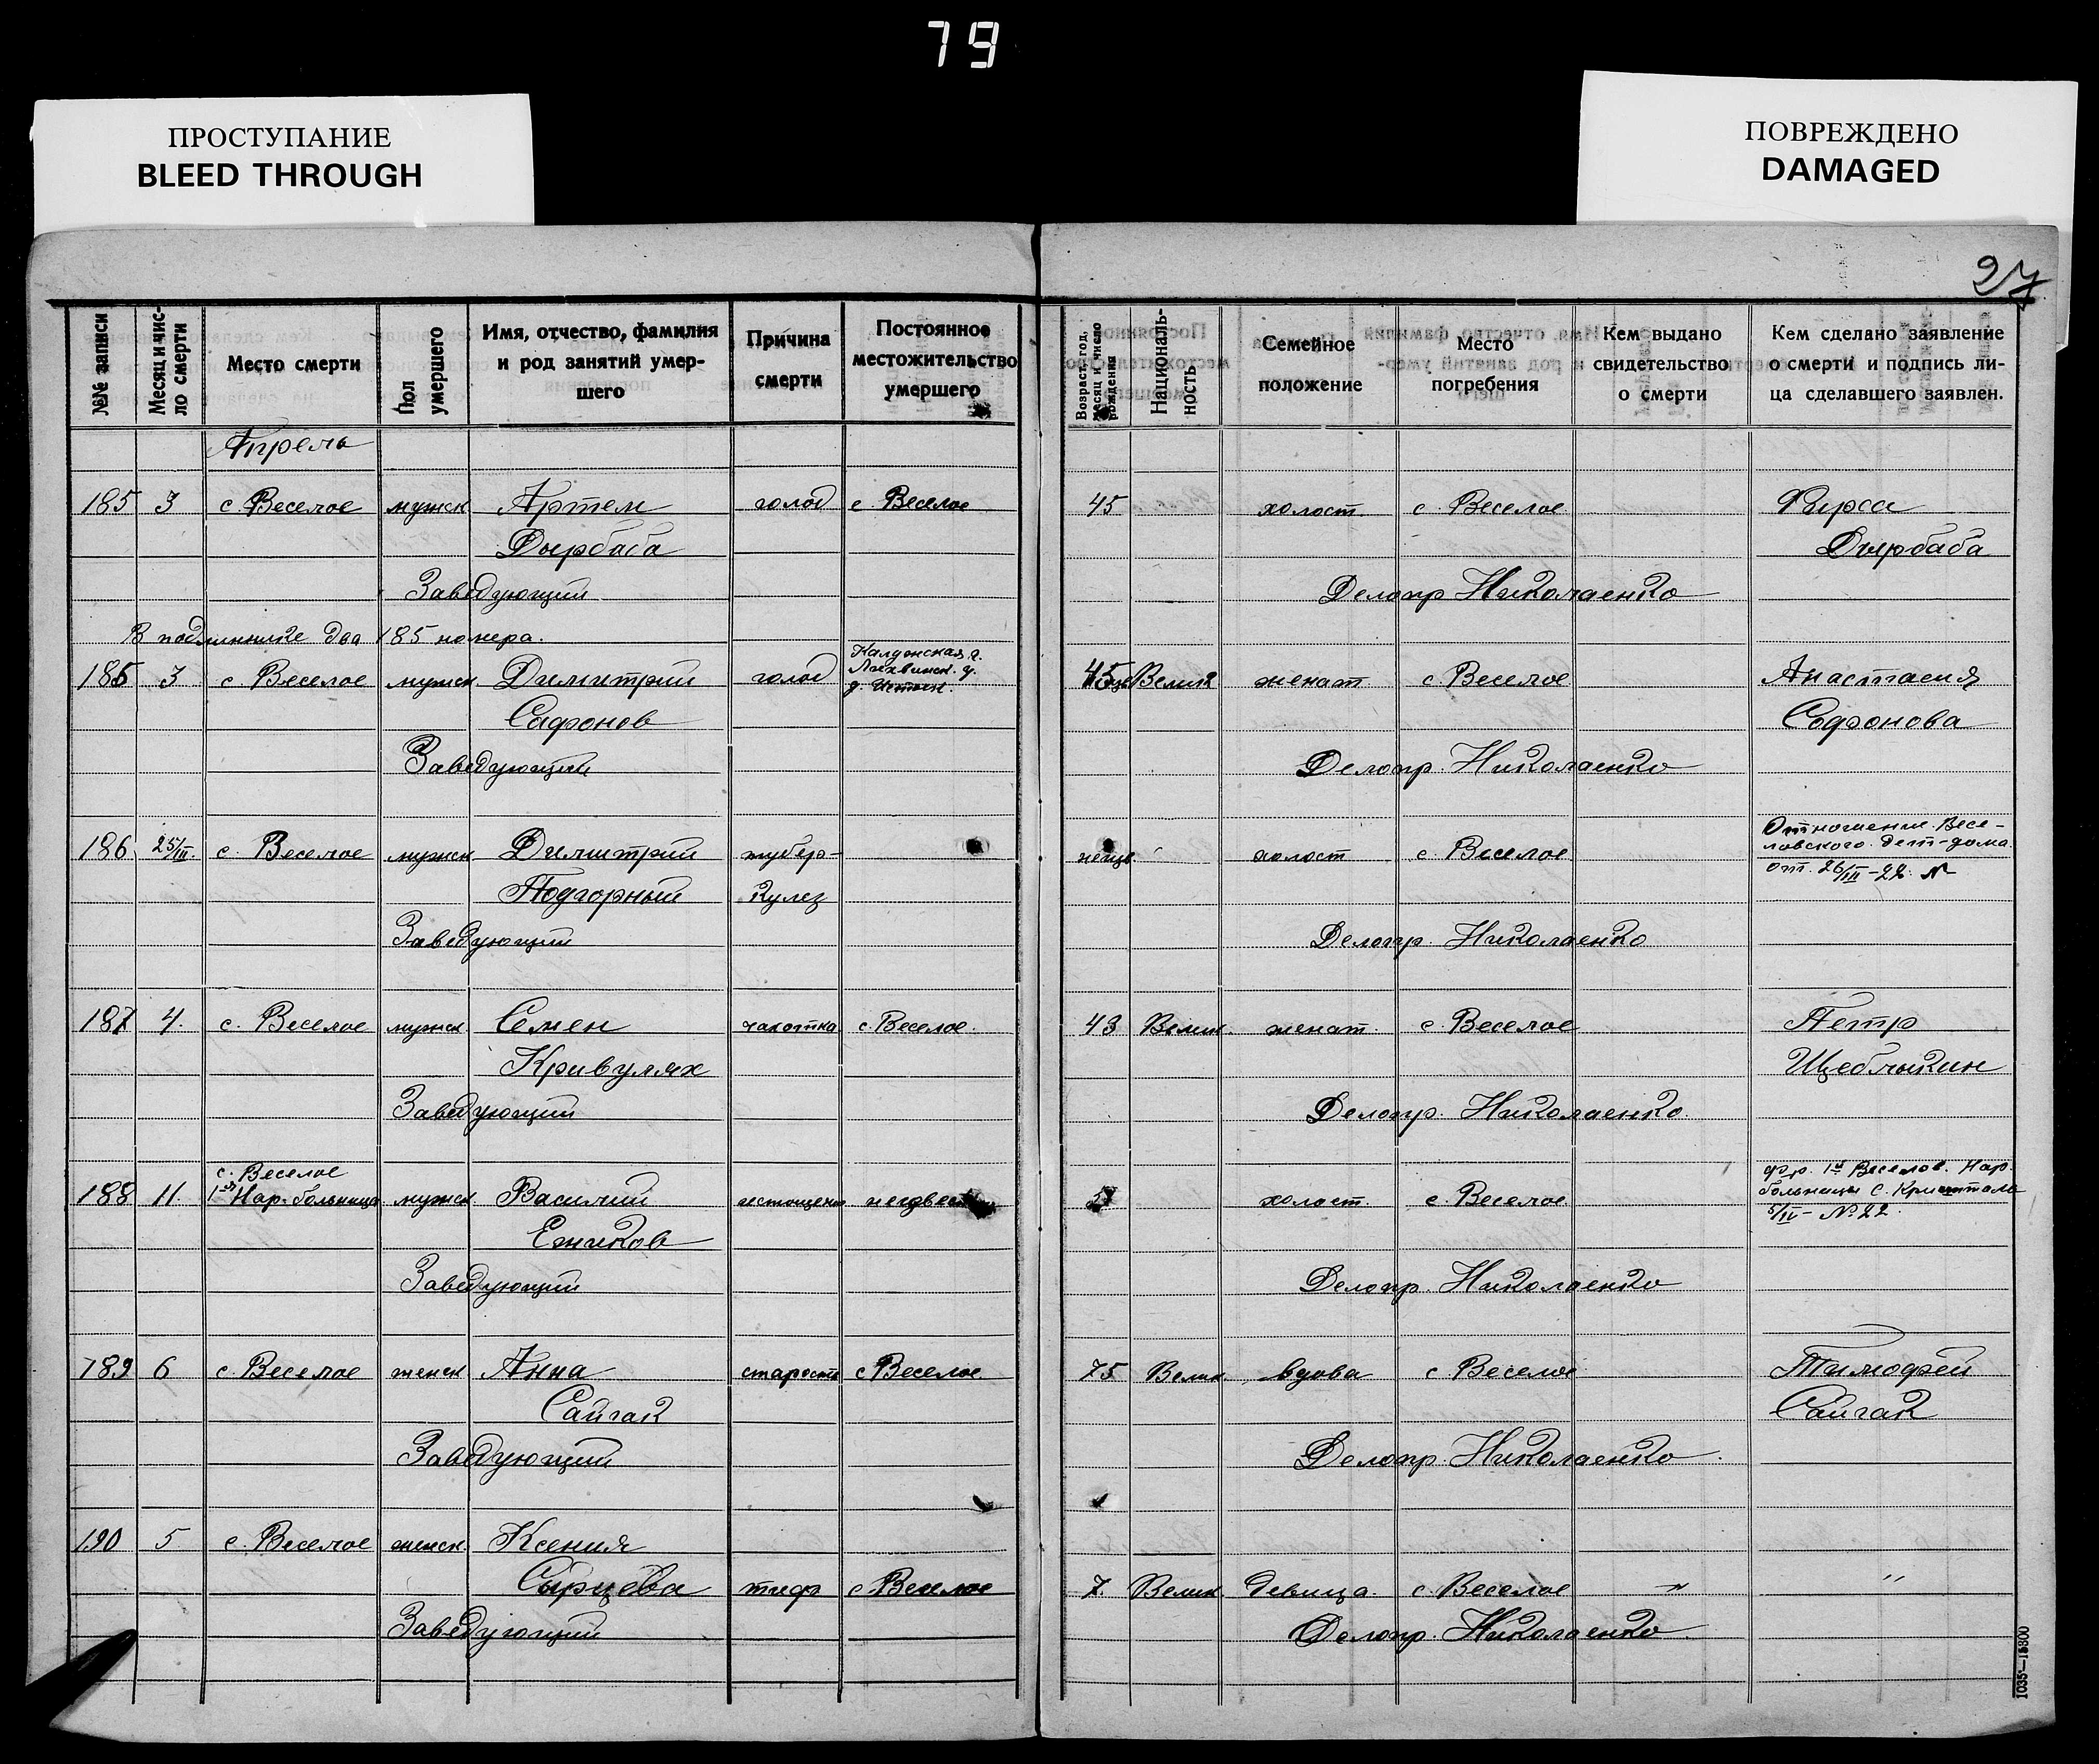 79
ПРОСТУПАНИЕ
BLEED THROUGH
ПОВРЕЖДЕНО
DAMAGED
27
№№ записи
Месяц и число смерти
Место смерти
Пол умершего
Имя, отчество, фамилия
и род занятий умер-
шего
Причина
смерти
Постоянное
местожительство
умершего
Возраст, год, месяц и число рождения
Националь-
ность
Семейное
положение
Место
погребения
Кем выдано
свидетельство
о смерти
Кем сделано заявление
о смерти и подпись ли-
ца сделавшего заявлен.
Апрель
185 3 с. Веселое мужск Артем голод с Веселое 45 холост. с. Веселое Фирса
Дырбаба Дырбаба
Заведующий Делопр Николаенко
В подлиннике два 185 номера.
185 3 с. Веселое мужск. Димитрий голод 45 Велик женат с. Веселое Анастасия
Сафонов Софонова
Заведующий Делопр. Николаенко
186 25/III. с. Веселое мужск Димитрий тубер- холост с. Веселое Отношение Весе-
ловского дет-дома
Подгорный кулез от. 26/III-22. №
Заведующий Делопр. Николаенко
187 4. с. Веселое мужск Семен чахотка с Веселое. 43 Велик. женат. с Веселое Петр
Кривулях Щеблыкин
Заведующий Делопр. Николаенко.
с. Веселое
188 11. 1-ая Нар. больница мужск. Василий истощение холост. с. Веселое 1й Веселов. Нар.
больницы С. Кришталь
5/IV- № 22.
Ежиков
Заведующий Делопр. Николаенко
189 6 с. Веселое женск Анна старость с Веселое. 75 Велик. вдова с Веселое Тимофей
Сайгак Сайгак
Заведующий Делопр. Николаенко.
190 5 с. Веселое женск. Ксения
Сырцева тиф с Веселое 7. Велик. девица. с. Веселое " "
Заведующий Делопр. Николаенко
1035—15800